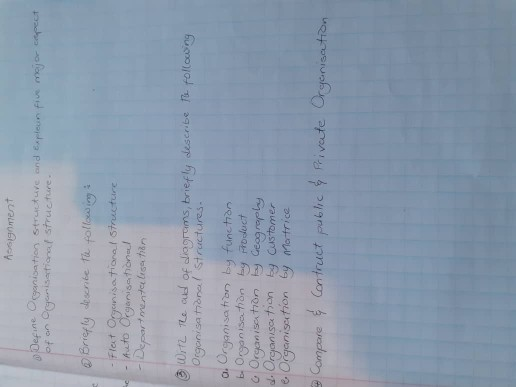 Assignment
① Define Organisation structure and Explain five major aspect
of an Organisational structure.
② Briefly describe the following:
- Flat Organisational structure
- Auto Organisational
- Departmentalisation
③ With the aid of diagrams, briefly describe the following
Organisational structures.
a. Organisation by function
b. Organisation by product
c. Organisation by Geography
d. Organisation by Customer
e. Organisation by Matrice
④ Compare & Contract public & Private Organisation